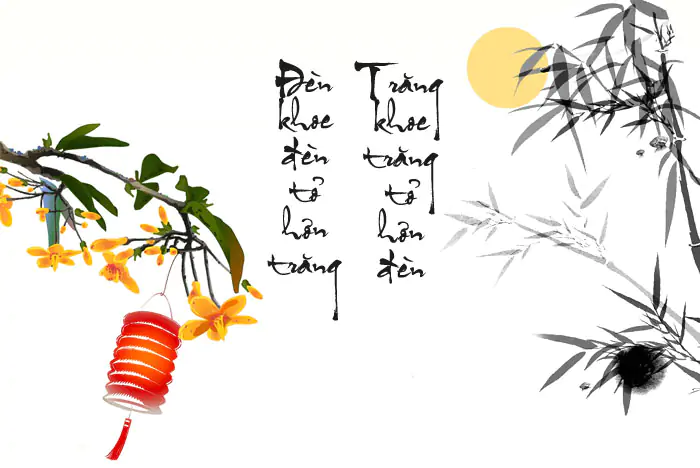 Đèn khoe đèn tỏ hơn trăng
Trăng khoe trăng tỏ hơn đèn